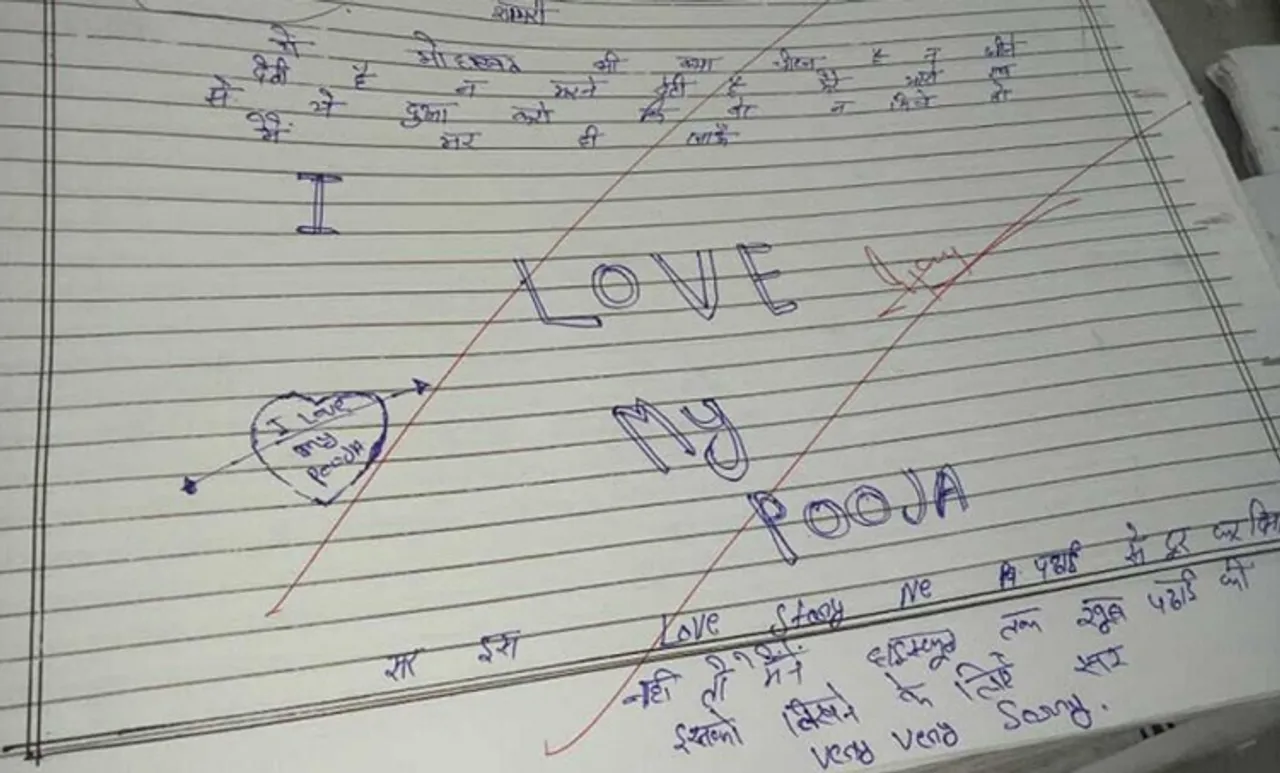 शायरी
ये मोहब्बत भी क्या चीज है न जीने
देती है न मरने देती है
से ये दुआ करो कि वो न मिले तो
मर ही जाऊँ
I
LOVE
I Love
my
Pooja
My
POOJA
सर इस Love Story Ne पढाई से दूर कर दिया
नही तो मैंने हाईस्कूल तक खूब पढाई की
इसको लिखने के लिए सर
very very Sorry.